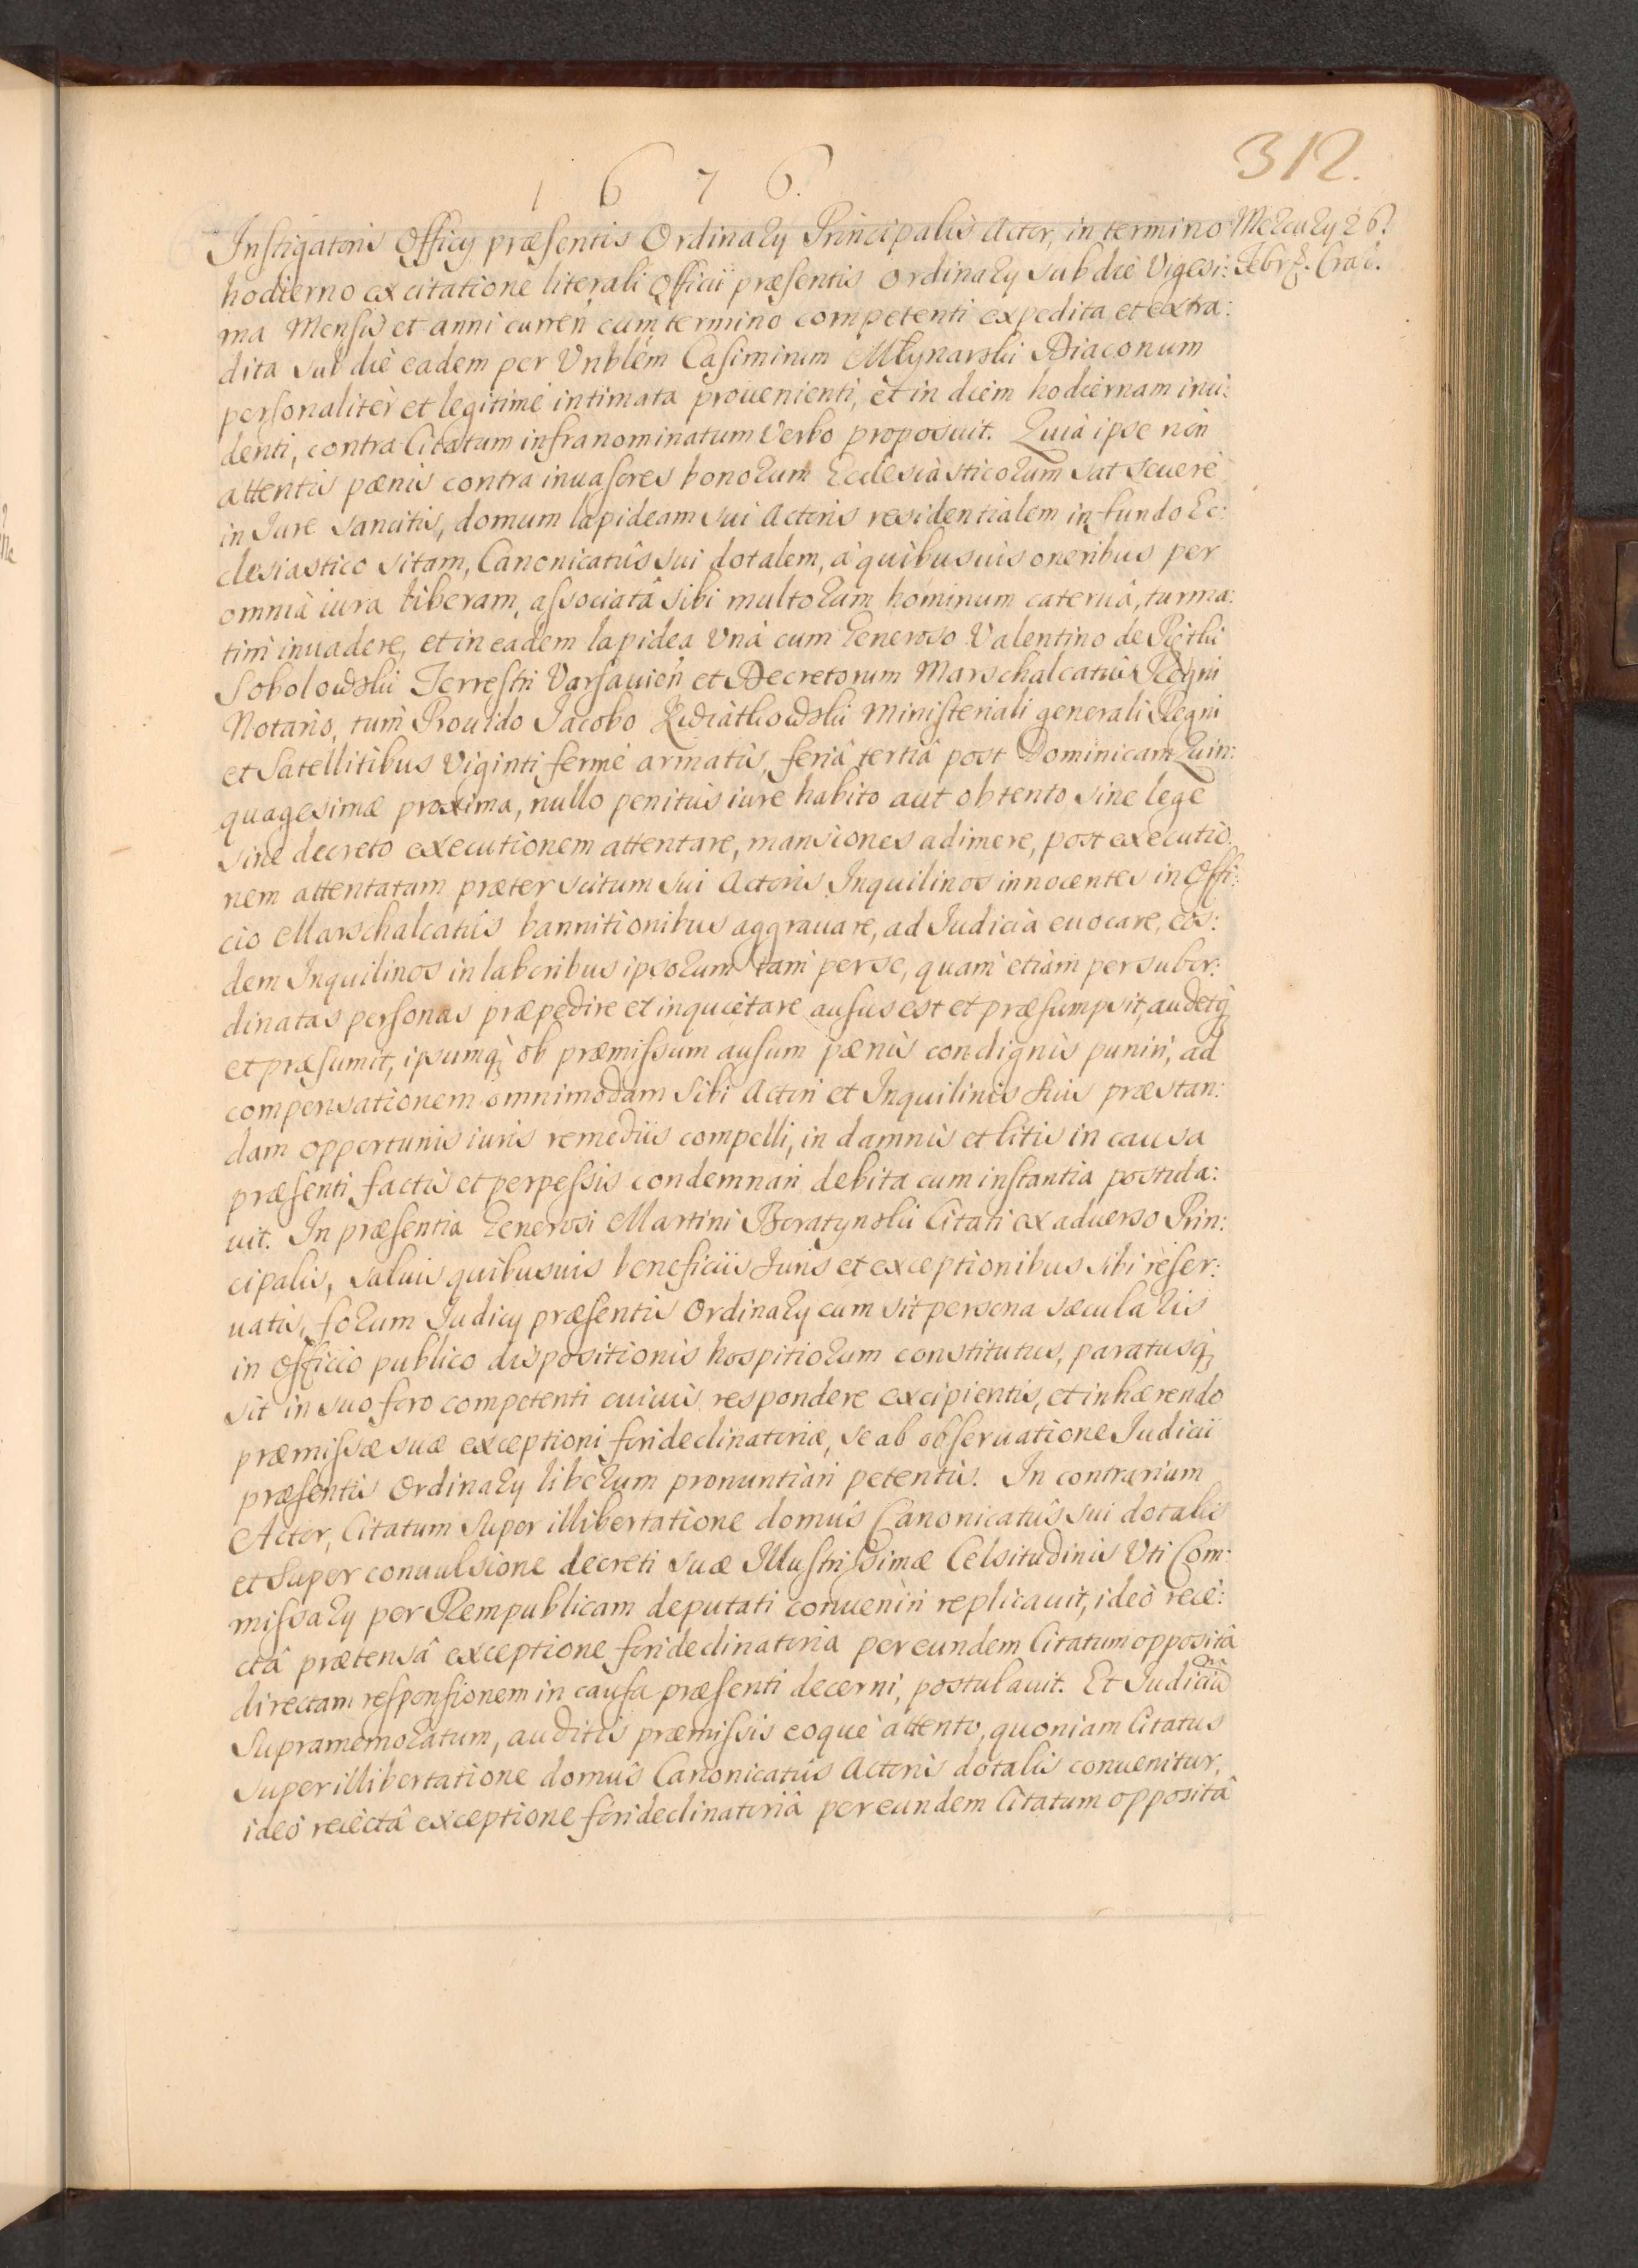 312.
1 6 7 6.
Instigatoris Officij præsentis Ordinarij Principalis Actor, in termino
Mercurij 26.
hodierno ex citatione literali Officii præsentis Ordinarij sub die Vigesi:
Febr. Crac.
ma Mensis et anni curren cum termino competenti expedita et extra:
dita sub die eadem per Vnblem Casimirum Młynarski Diaconum
personaliter et legitime intimata prouenienti, et in diem hodiernam inci:
denti, contra Citatum infranominatum Verbo proposuit. Quia ipse non
attentis pænis contra inuasores bonorum Ecclesiasticorum sat seuere
in Iure sancitis, domum lapideam sui Actoris residentialem in fundo Ec:
clesiastico sitam, Canonicatûs sui dotalem, à quibusuis oneribus per
omnia iura liberam, associatâ sibi multorum hominum cateruâ, turma:
tim inuadere, et in eadem lapidea Vnà cum Generoso Valentino de
Sobolowski Terrestri Varsauien et Decretorum Marschalcatus Regni
Notario, tum Prouido Iacobo Kwiatkowski Ministeriali generali Regni
et Satellitibus Viginti ferme armatis, feriâ tertiâ post Dominicam Quin:
quagesimæ proxima, nullo penitus iure habito aut obtento sine lege
sine decreto executionem attentare, mansiones adimere, post executio.
nem attentatam præter scitum sui Actoris Inquilinos innocentes in Offi:
cio Marschalcatûs bannitionibus aggrauare, ad Iudicia euocare, eos:
dem Inquilinos in laboribus ipsorum tam per se, quam etiam per subor:
dinatas personas præpedire et inquietare ausus est et præsumpsit, audetq;
et præsumit, ipsumq; ob præmissum ausum pænis condignis puniri, ad
compensationem omnimodam Sibi Actori et Inquilinis suis præstan:
dam opportunis iuris remediis compelli, in damnis et litis in causa
præsenti factis et perpessis condemnari debita cum instantia postula:
uit. In præsentia Generosi Martini Boratynski Citati ex aduerso Prin:
cipalis, saluis quibusuis beneficiis Iuris et exceptionibus sibi reser:
uatis, forum Iudicij præsentis Ordinarij cum sit persona sæcularis
in Officio publico dispositionis hospitiorum constitutus, paratusq;
sit in suo foro competenti cuiuis respondere excipientis, et inhærendo
præmissæ suæ exceptioni forideclinatoriæ, se ab obseruatione Iudicii
præsentis Ordinarij liberum pronuntiari petentis. In contrarium
Actor, Citatum super illibertatione domûs Canonicatûs sui dotalis
et super conuulsione decreti suæ Illustrissimæ Celsitudinis Vti Com:
missarij per Rempublicam deputati conueniri replicauit, ideo reie:
ctâ prætensâ exceptione forideclinatoria per eundem Citatum oppositâ
directam responsionem in causa præsenti decerni, postulauit. Et Iudiciu
Supramemoratum, auditis præmissis eoque attento, quoniam Citatus
super illibertatione domûs Canonicatûs Actoris dotalis conuenitur,
ideo reiectâ exceptione forideclinatoriâ per eundem Citatum oppositâ